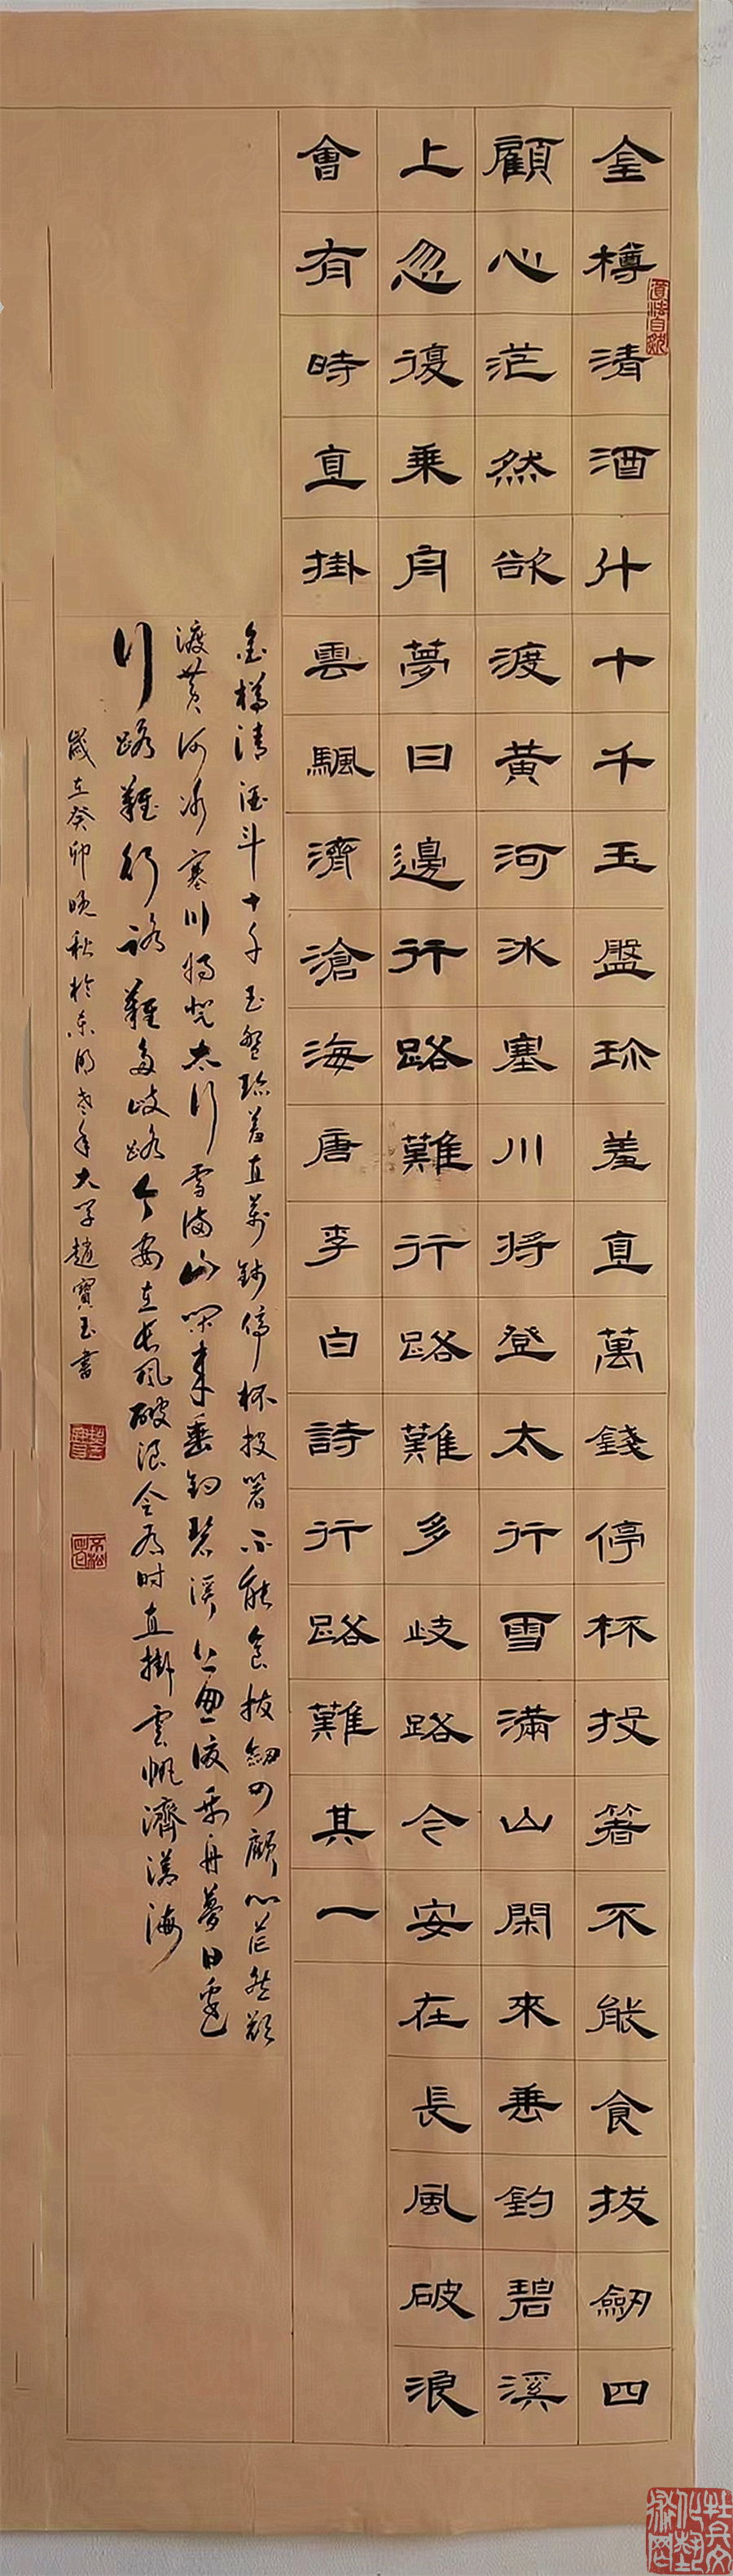 金樽清酒斗十千玉盤珎羞直萬錢停杯投箸不能食拔劒四
顧心茫然欲渡黃河冰塞川將登太行雪滿山閑來垂釣碧溪
上忽復乘舟夢日邊行路難行路難多歧路今安在長風破浪
會有時直掛雲颿濟滄海唐李白詩行路難其一
金樽清酒斗十千玉盤珎羞直萬錢停杯投箸不能食拔劒四顧心茫然欲
渡黃河冰塞川將登太行雪滿山閑來垂釣碧溪上忽復乘舟夢日邊
行路難行路難多歧路今安在長風破浪會有時直掛雲帆濟滄海
歲在癸卯晚秋於東明老年大學趙寶玉書
道法自然